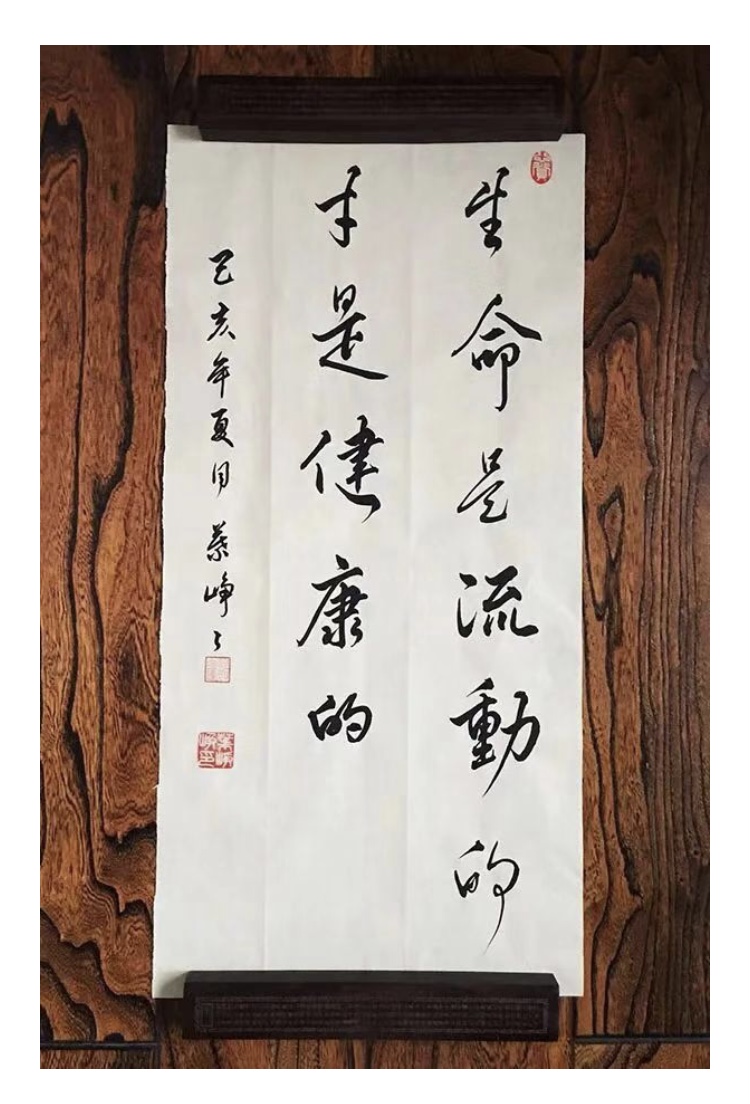 生命是流動的
才是健康的
己亥年夏月 蔡崢々